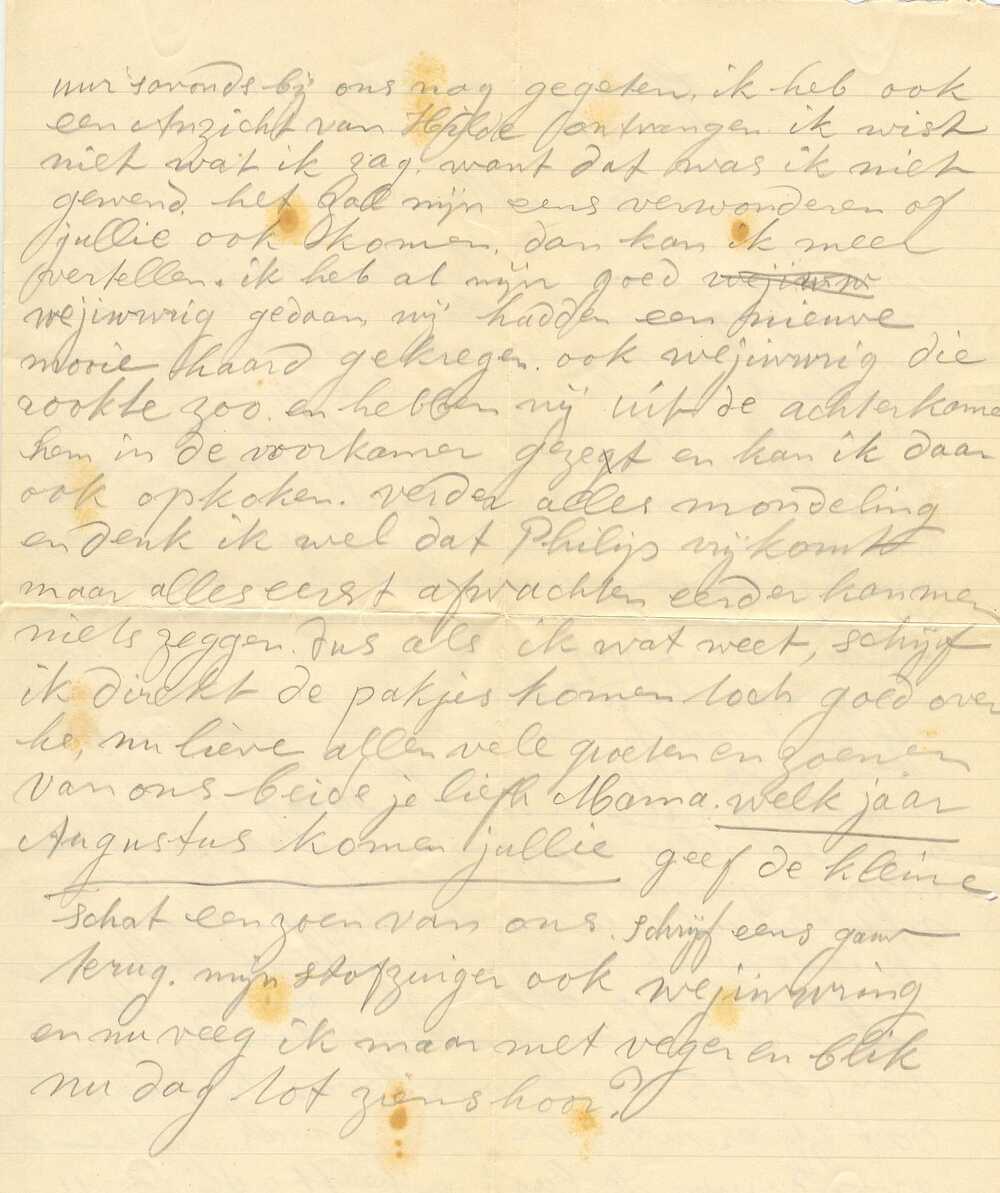 uur savonds bij ons nog gegeten, ik heb ook
een Anzicht van Hilde ontvangen ik wist
niet wat ik zag. want dat was ik niet
gewend. het zal mijn eens verwonderen of
jullie ook komen, dan kan ik meer
vertellen. ik heb al mijn goed wejiwrw
wejiwwrig gedaan, wij hadden een nieuwe
mooie haard gekregen. ook wejiwwrig die
rookte zoo. en hebben wij uit de achterkame
hem in de voorkamer gezegt en kan ik daar
ook opkoken. verder alles mondeling
en denk ik wel dat Philijs vrijkomt
maar alles eerst afwachten eerder kan men
niets zeggen. dus als ik wat weet, schijf
ik direkt de pakjes komen toch goed over
he, nu lieve allen vele groeten en zoenen
van ons beide je liefh Mama. welk jaar
Augustus komen jullie geef de kleine,
schat een zoen van ons. schrijf eens gauw
terug. mijn stofzuiger ook wejiwwring
en nu veeg ik maar met veger en blik
nu dag tot ziens hoor?